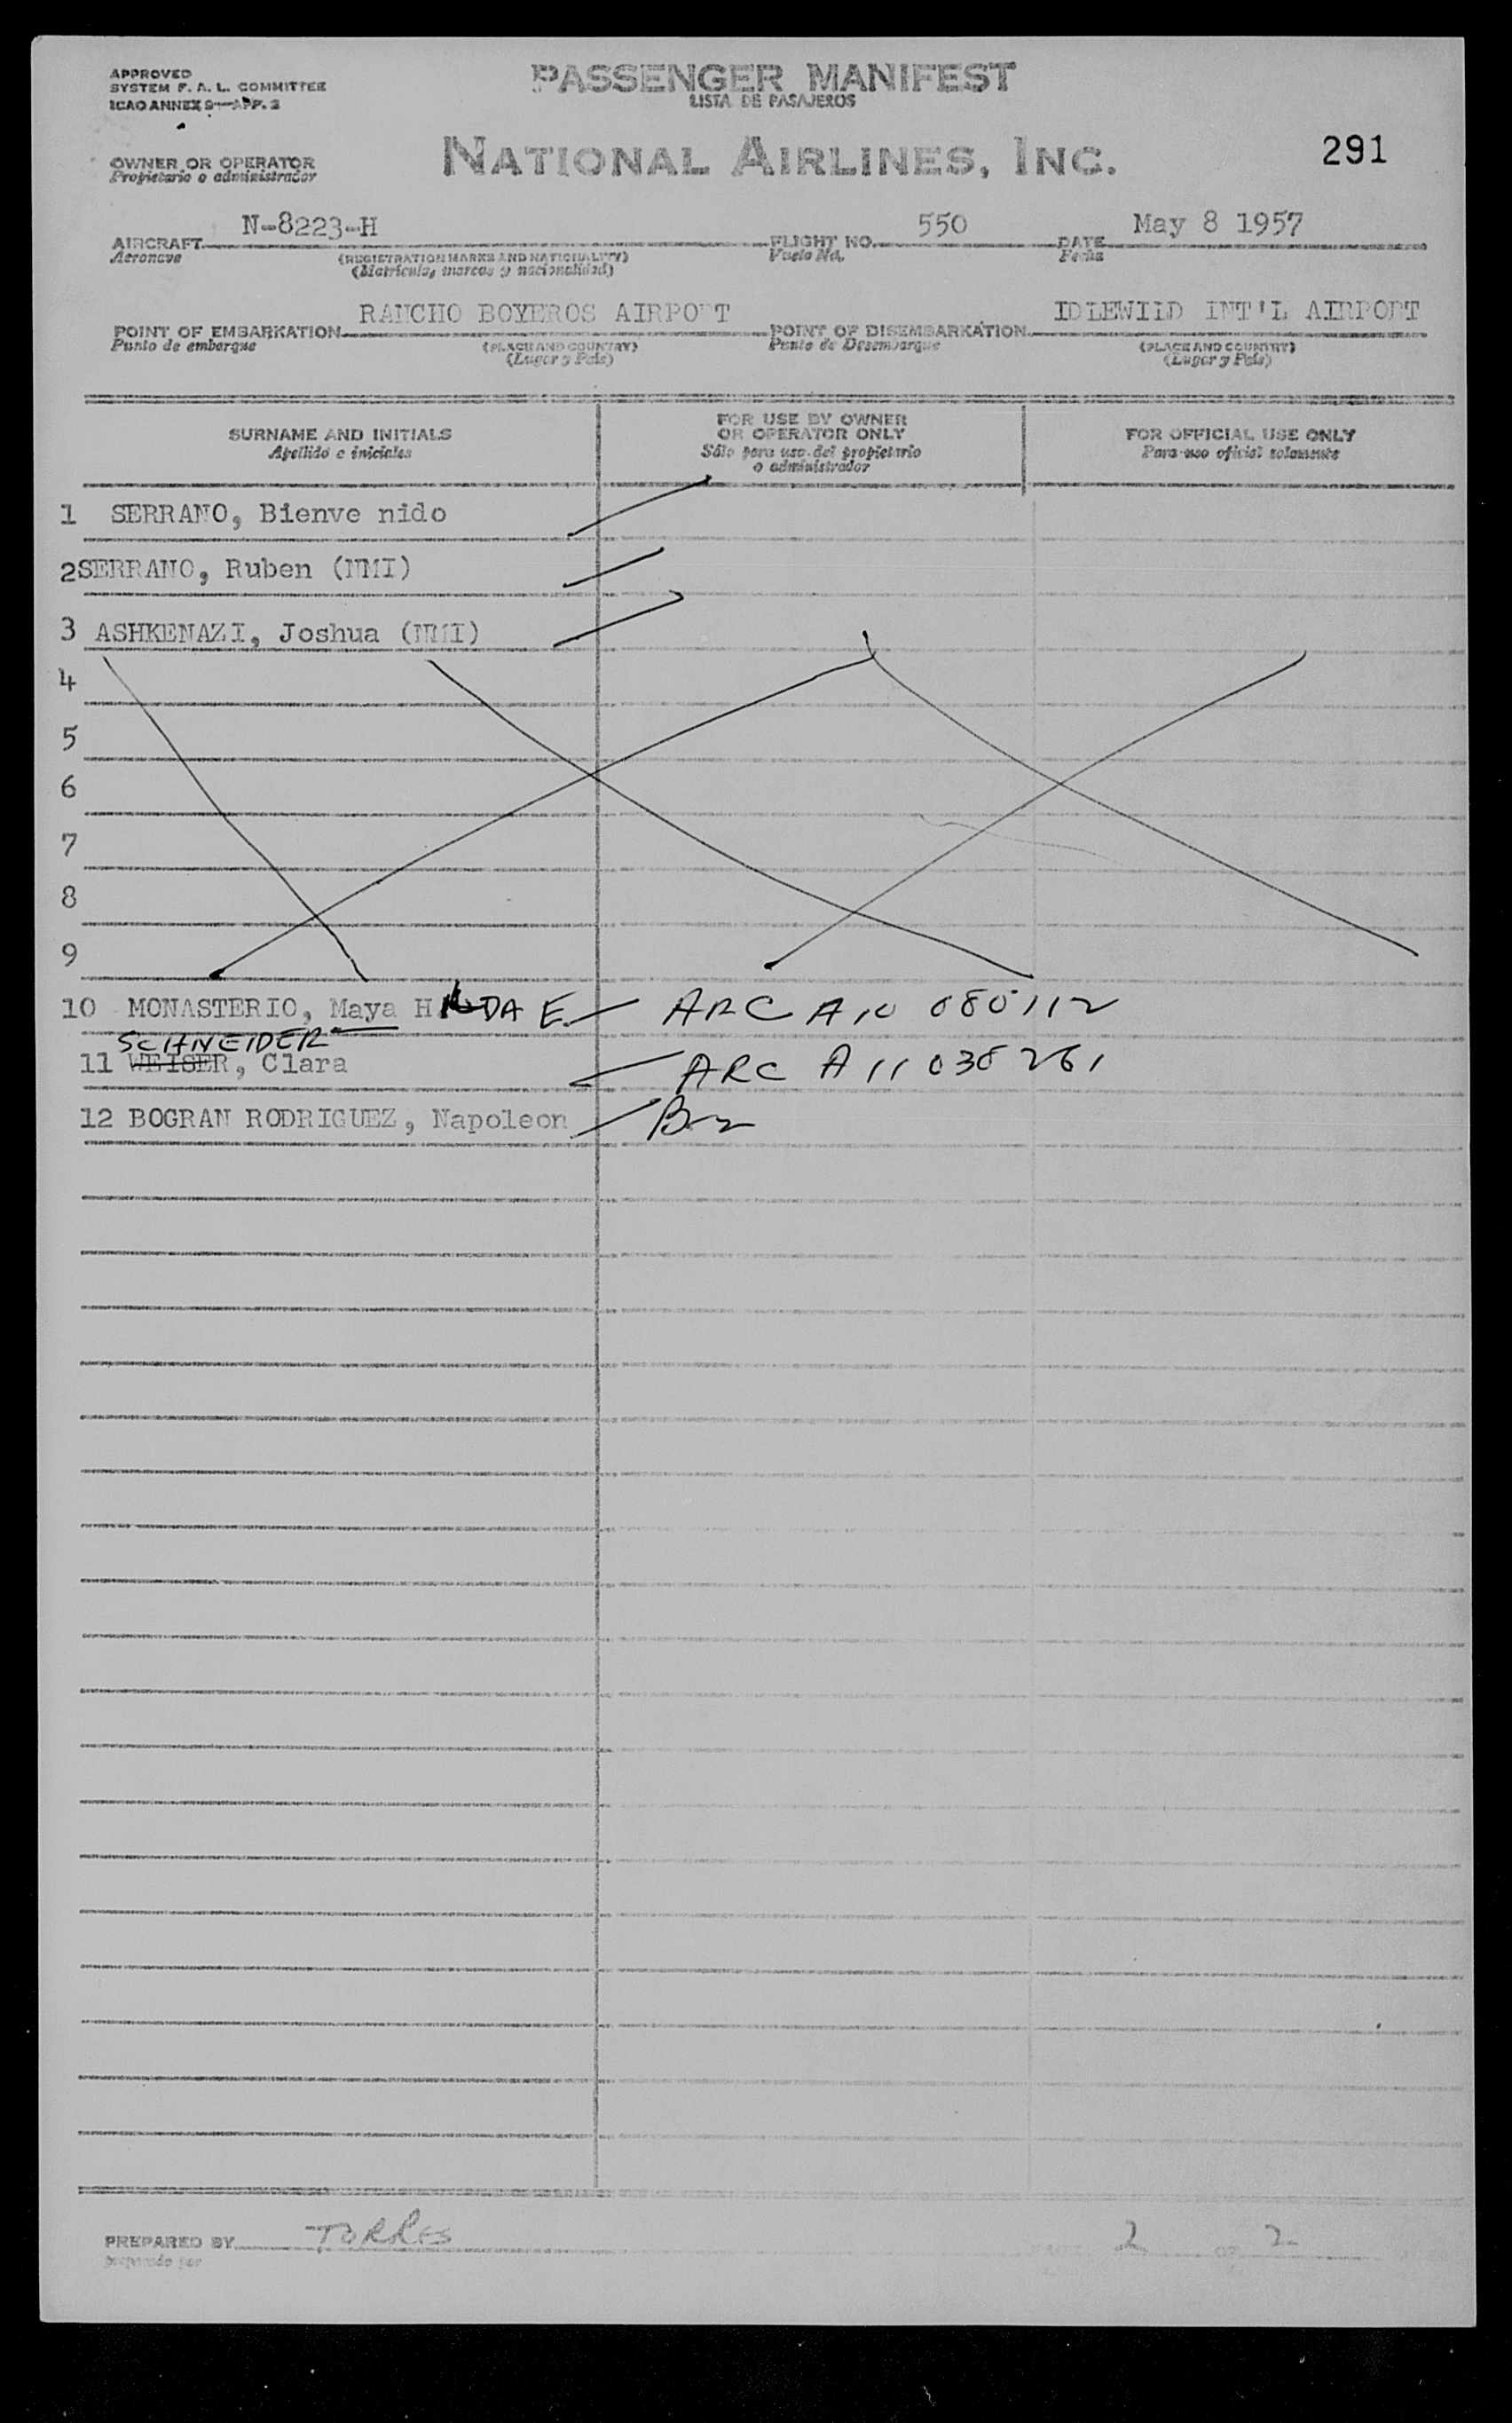 APPROVED
SYSTEM F. A. L. COMMITTEE
ICAO ANNEX 9—APP. 3
PASSENGER MANIFEST
LISTA DE PASAJEROS
OWNER OR OPERATOR
Propietario o administrador
NATIONAL AIRLINES, INC.
291
AIRCRAFT N-8223-H FLIGHT NO. 550 DATE May 8 1957
Aeronave (REGISTRATION MARKS AND NATIONALITY) Vuelo No. Fecha
(Matricula, marcas y nacionalidad)
POINT OF EMBARKATION RANCHO BOYEROS AIRPORT POINT OF DISEMBARKATION IDLEWILD INT'L AIRPORT
Punto de embarque (PLACE AND COUNTRY) Punto de Desembarque (PLACE AND COUNTRY)
(Lugar y País) (Lugar y País)
SURNAME AND INITIALS
Apellido e iniciales
FOR USE BY OWNER
OR OPERATOR ONLY
Sólo para uso del propietario
o administrador
FOR OFFICIAL USE ONLY
Para uso oficial solamente
1 SERRANO, Bienve nido
2 SERRANO, Ruben (NMI)
3 ASHKENAZI, Joshua (NMI)
4
5
6
7
8
9
10 MONASTERIO, Maya H DA E. ARC A10 080112
SCHNEIDER
11 WEISER, Clara ARC A11 038 261
12 BOGRAN RODRIGUEZ, Napoleon B-2
PREPARED BY TORRES 2 OF 2
preparado por